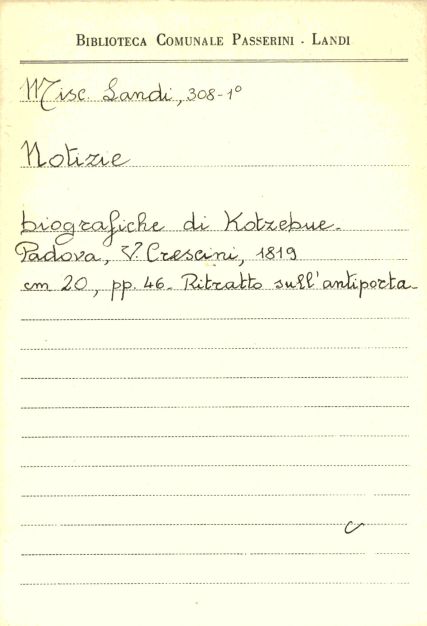 BIBLIOTECA COMUNALE PASSERINI - LANDI
Misc. Landi, 308-1°
Notizie
biografiche di Kotzebue.
Padova, V. Crescini, 1819
cm 20, pp. 46. Ritratto sull'antiporta.
c